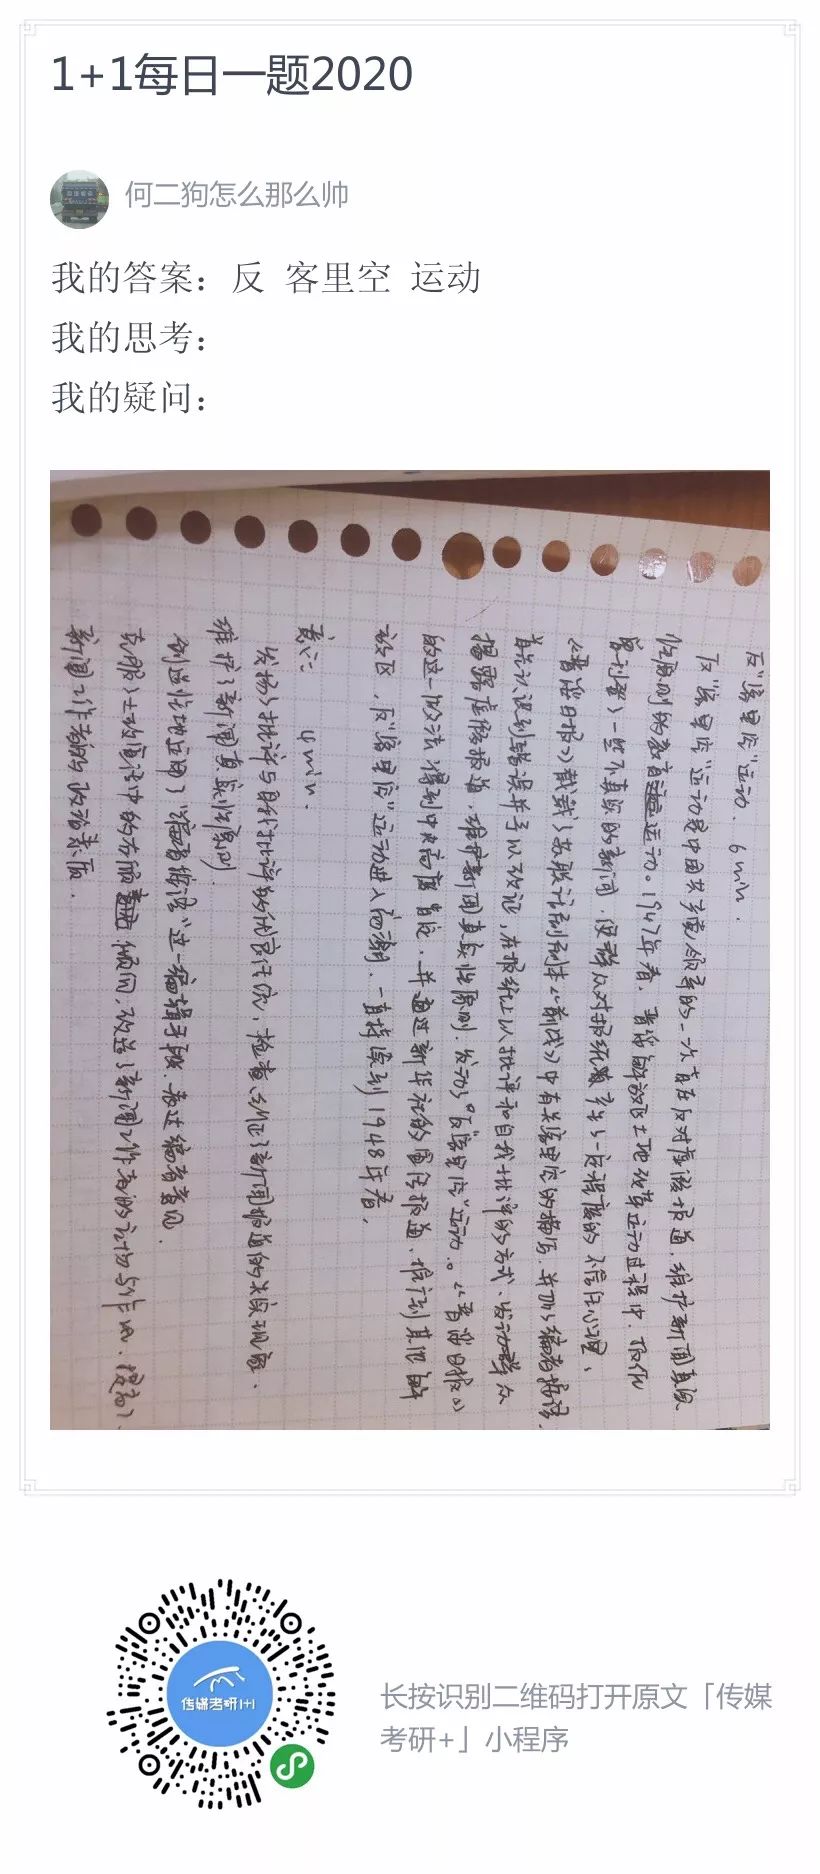 1+1每日一题2020
何二狗怎么那么帅
我的答案：反 客里空 运动
我的思考：
我的疑问：
反“客里空”运动. 6min.
反“客里空”运动是中国共产党领导的一次旨在反对虚假报道，维护新闻真实
性原则的教育运动。1947年春，晋绥解放区土地改革运动过程中，
一些不真实的新闻，使群众对报纸产生了一定程度的不信任心理，
《晋绥日报》载了苏联话剧剧本《前线》中有关客里空的描写，并加了编者按语，
认识到错误并予以改正，在报纸上以批评和自我批评的方式，发动群众
揭露虚假报道，维护新闻真实性原则，发动了“反客里空”运动。《晋绥日报》
的这一做法得到中央高度肯定，并通过新华社的宣传报道，推行到其他解
放区，反“客里空”运动进入高潮，一直持续到1948年春，
意义： 4min.
发扬了批评与自我批评的优良作风，检查纠正了新闻报道的失实现象，
维护了新闻真实性原则.
创造性地运用了“编者按语”这一编辑手段，表达编者意见.
克服了土改宣传中的右倾倾向，改造了新闻工作者的立场与作风，提高了
新闻工作者的政治素质.
传媒考研1+1
长按识别二维码打开原文「传媒
考研+」小程序